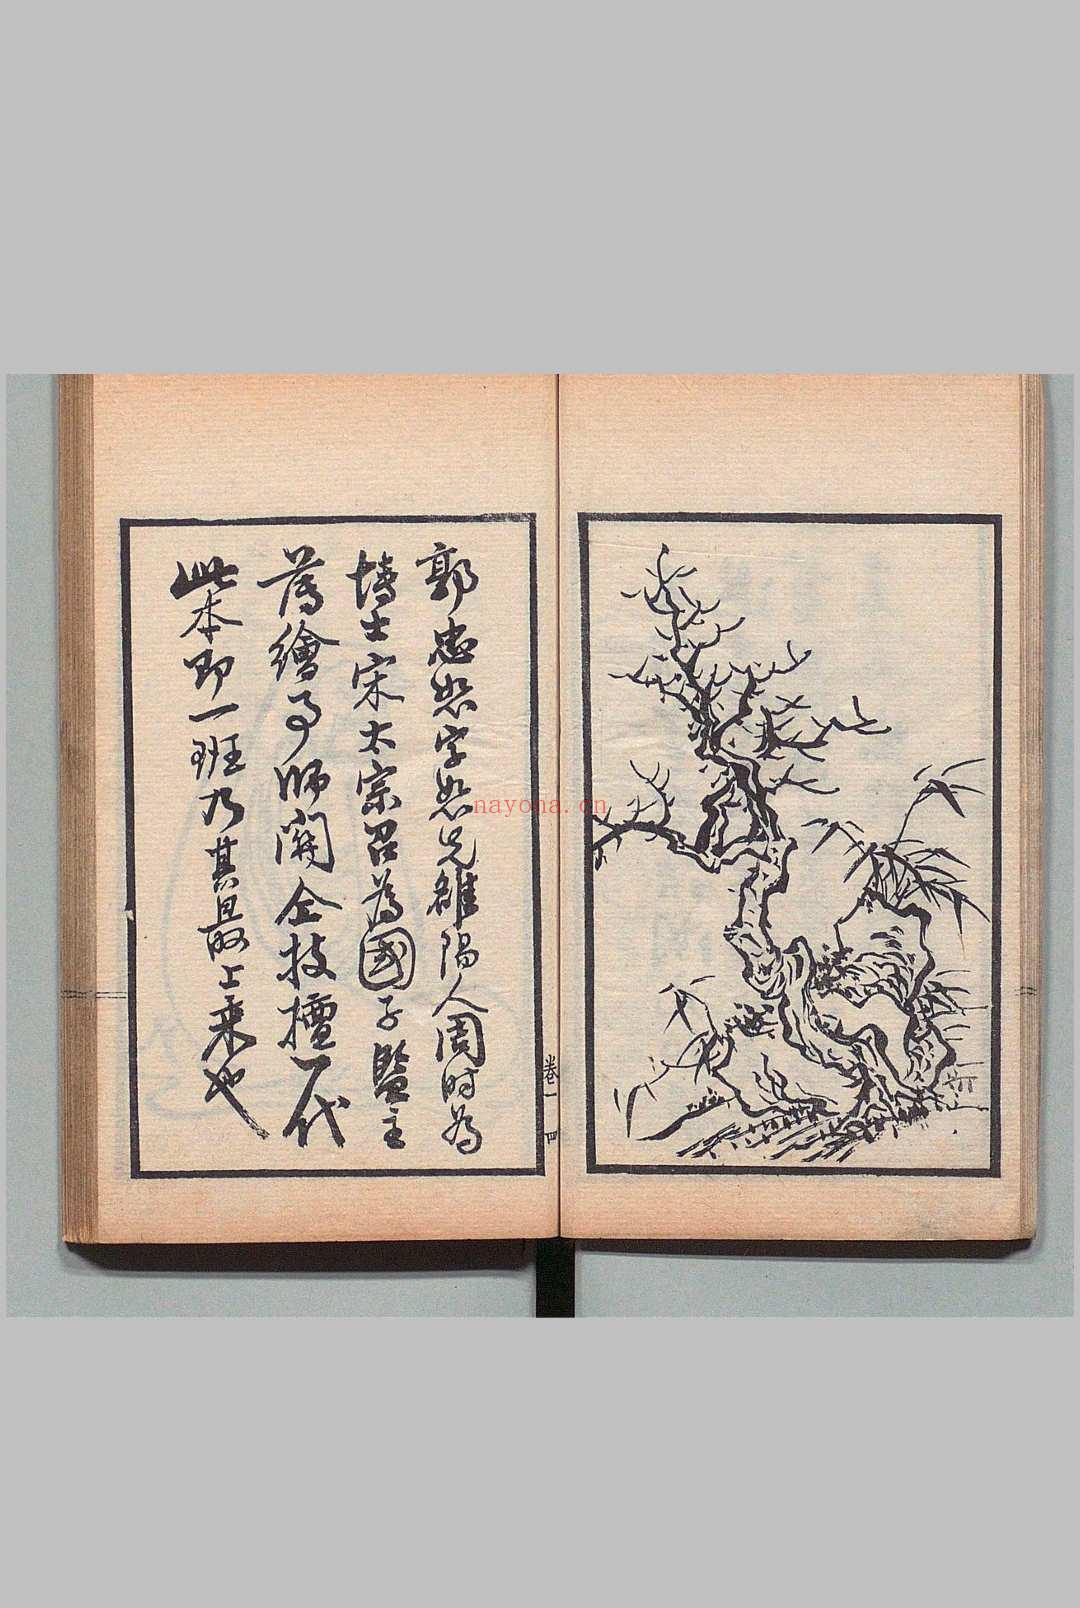 郭忠恕字恕先雒陽人周时为
博士宋太宗召為國子監主
薄繪事師關仝技擅一代
此本即一班乃其最上乘也
卷一 四
nayona.cn